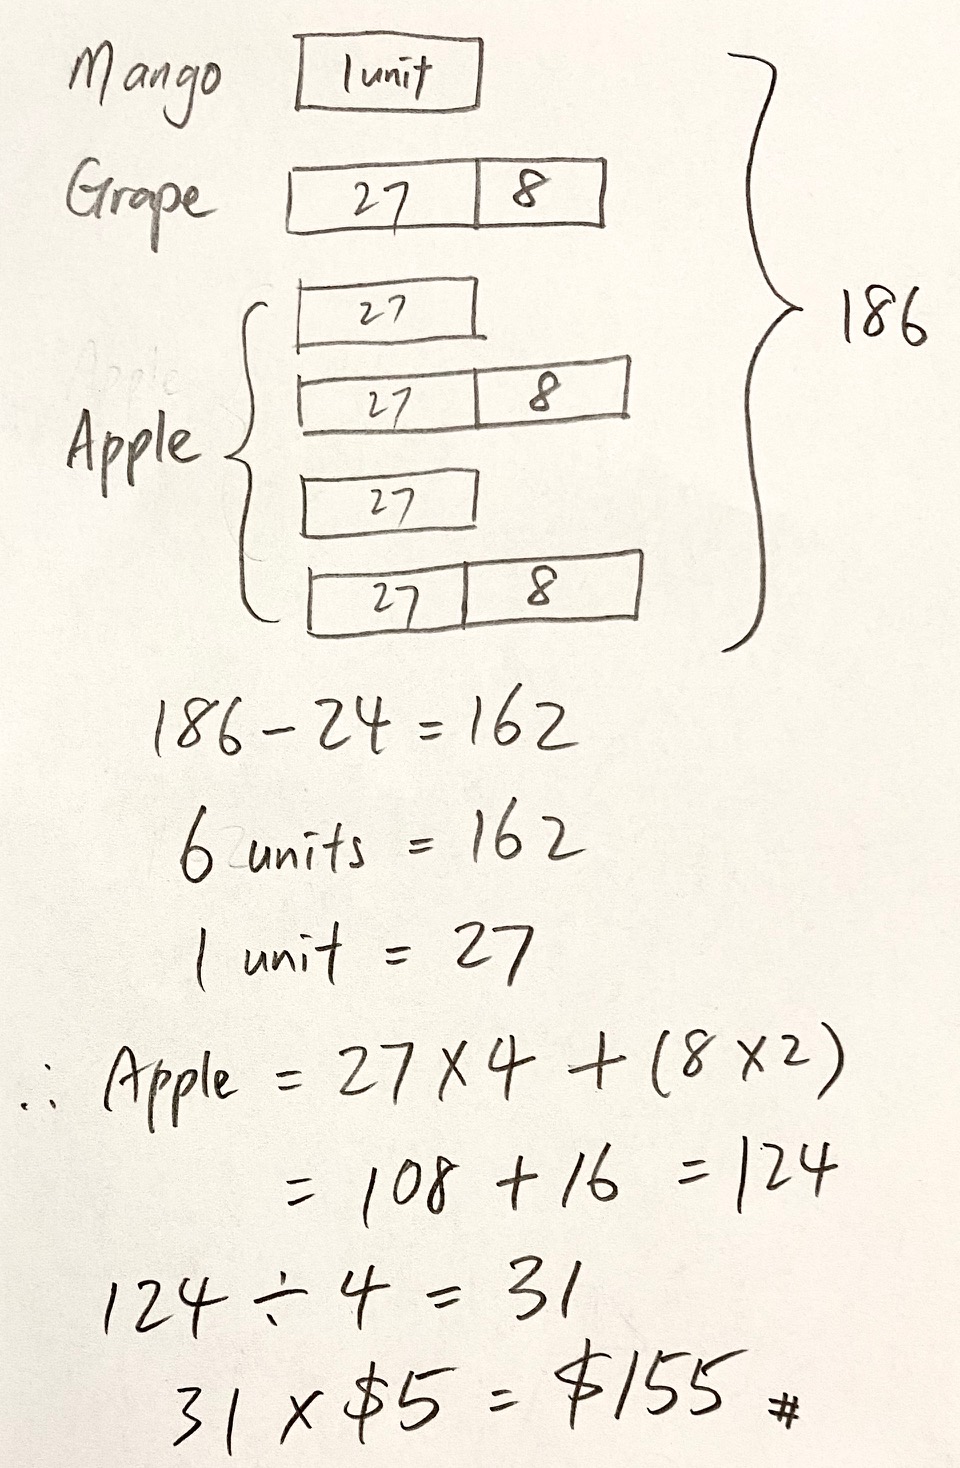 Mango 1 unit
Grape 27 8
27
27 8
Apple
27
27 8
186
186 - 24 = 162
6 units = 162
1 unit = 27
∴ Apple = 27 × 4 + (8 × 2)
= 108 + 16 = 124
124 ÷ 4 = 31
31 × $5 = $155 #